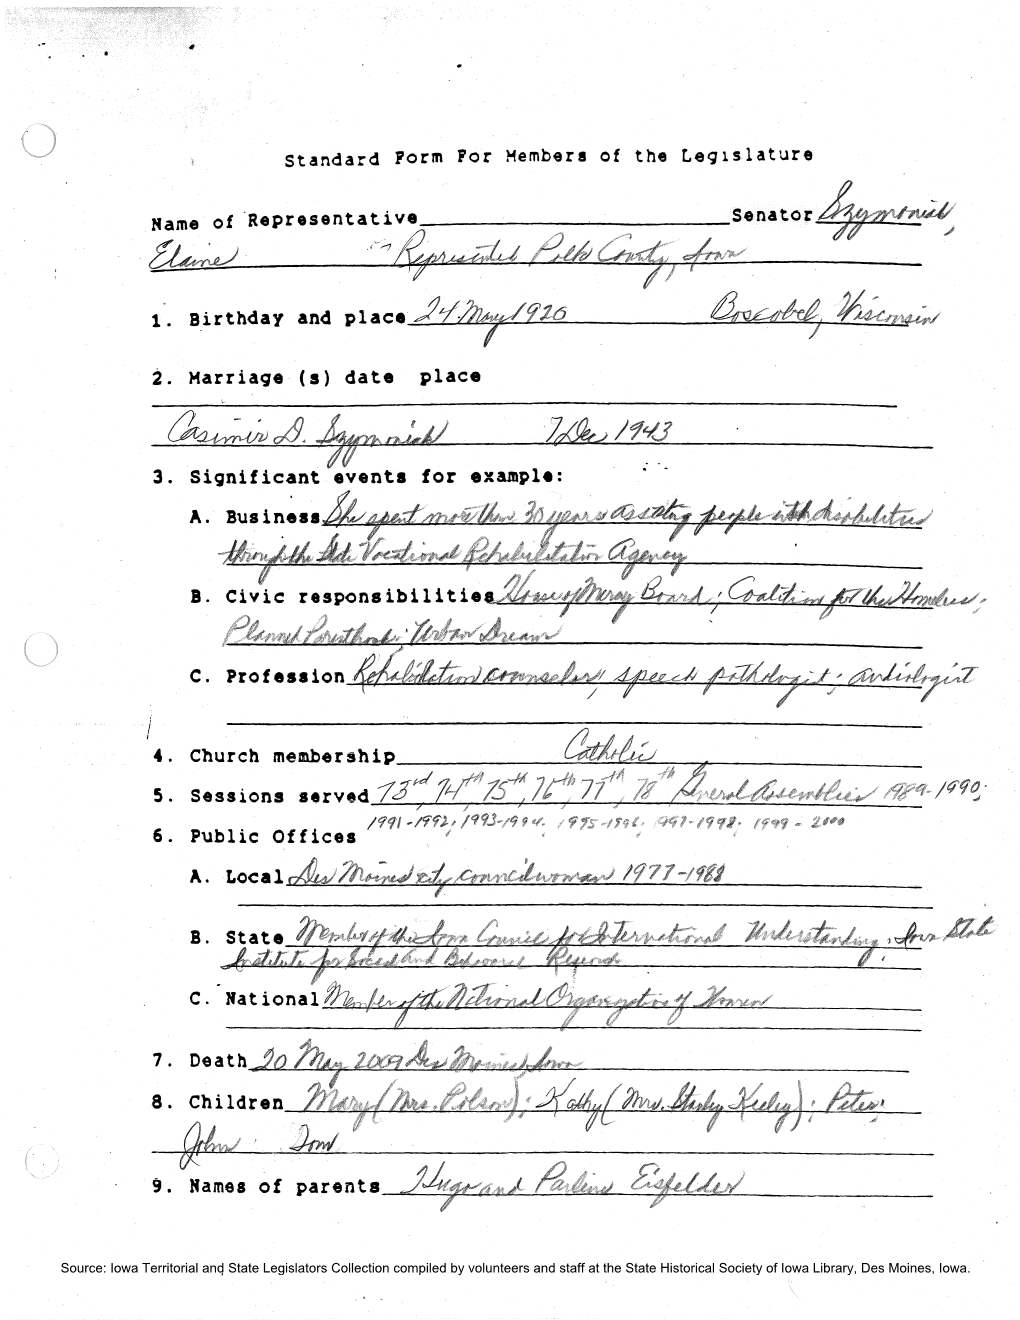 Standard Form For Members of the Legislature
Name of Representative Senator Szymoniak,
Elaine Represented Polk County, Iowa
1. Birthday and place 24 May 1920 Boscobel, Wisconsin
2. Marriage (s) date place
Casimir D. Szymoniak 7 Dec 1943
3. Significant events for example:
A. Business She spent more than 30 years assisting people with disabilities
through the State Vocational Rehabilitation Agency
B. Civic responsibilities House of Mercy Board; Coalition for the Homeless;
Planned Parenthood; Urban Dreams
C. Profession Rehabilitation counselor; speech pathologist; audiologist
4. Church membership Catholic
5. Sessions served 73rd, 74th, 75th, 76th, 77th, 78th General Assemblies 1989-1990;
1991-1992; 1993-1994; 1995-1996; 1997-1998; 1999-2000
6. Public Offices
A. Local Des Moines city councilwoman 1977-1988
B. State Member of the Iowa Council for International Understanding; Iowa State
Institute for Social and Behavioral Research
C. National Member of the National Organization of Women
7. Death 20 May 2009 Des Moines, Iowa
8. Children Mary (Mrs. Polson); Kathy (Mrs. Stanley Keeley); Peter;
John Tom
9. Names of parents Hugo and Pauline Eisfelder
Source: Iowa Territorial and State Legislators Collection compiled by volunteers and staff at the State Historical Society of Iowa Library, Des Moines, Iowa.